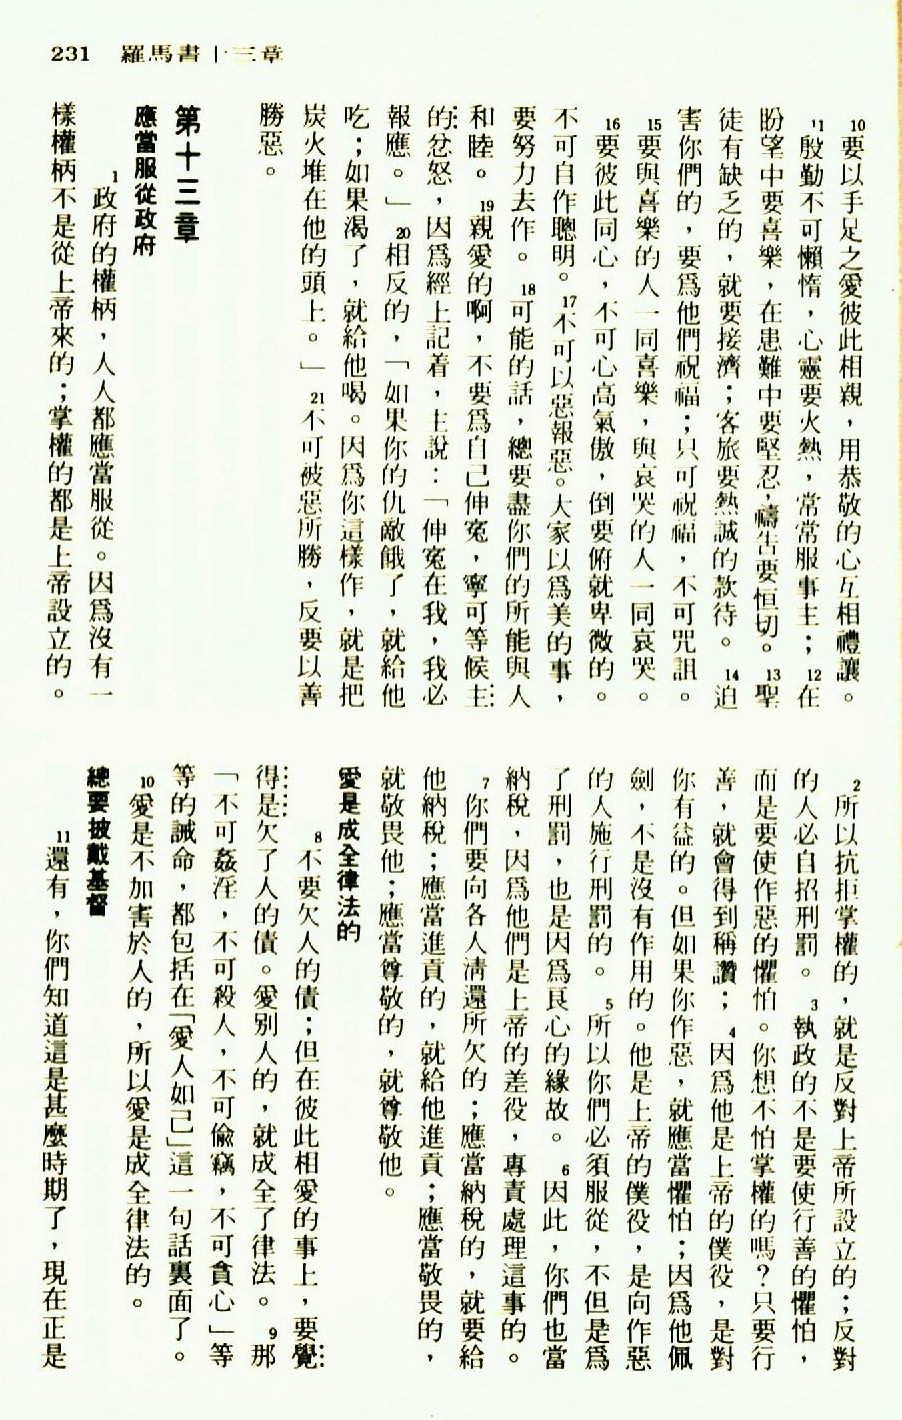 231 羅馬書十三章
10要以手足之愛彼此相親，用恭敬的心互相禮讓。
11殷勤不可懶惰，心靈要火熱，常常服事主；12在
盼望中要喜樂，在患難中要堅忍，禱告要恒切。13聖
徒有缺乏的，就要接濟；客旅要熱誠的款待。14迫
害你們的，要爲他們祝福；只可祝福，不可咒詛。
15要與喜樂的人一同喜樂，與哀哭的人一同哀哭。
16要彼此同心，不可心高氣傲，倒要俯就卑微的。
不可自作聰明。17不可以惡報惡。大家以爲美的事，
要努力去作。18可能的話，總要盡你們的所能與人
和睦。19親愛的啊，不要爲自己伸寃，寧可等候主
的忿怒，因爲經上記着，主說：「伸寃在我，我必
報應。」20相反的，「如果你的仇敵餓了，就給他
吃；如果渴了，就給他喝。因爲你這樣作，就是把
炭火堆在他的頭上。」21不可被惡所勝，反要以善
勝惡。
第十三章
應當服從政府
1政府的權柄，人人都應當服從。因爲沒有一
樣權柄不是從上帝來的；掌權的都是上帝設立的。
2所以抗拒掌權的，就是反對上帝所設立的；反對
的人必自招刑罰。3執政的不是要使行善的懼怕，
而是要使作惡的懼怕。你想不怕掌權的嗎？只要行
善，就會得到稱讚；4因爲他是上帝的僕役，是對
你有益的。但如果你作惡，就應當懼怕；因爲他佩
劍，不是沒有作用的。他是上帝的僕役，是向作惡
的人施行刑罰的。5所以你們必須服從，不但是爲
了刑罰，也是因爲良心的緣故。6因此，你們也當
納稅，因爲他們是上帝的差役，專責處理這事的。
7你們要向各人淸還所欠的；應當納稅的，就要給
他納稅；應當進貢的，就給他進貢；應當敬畏的，
就敬畏他；應當尊敬的，就尊敬他。
愛是成全律法的
8不要欠人的債；但在彼此相愛的事上，要覺
得是欠了人的債。愛別人的，就成全了律法。9那
「不可姦淫，不可殺人，不可偸竊，不可貪心」等
等的誡命，都包括在「愛人如己」這一句話裏面了。
10愛是不加害於人的，所以愛是成全律法的。
總要披戴基督
11還有，你們知道這是甚麼時期了，現在正是